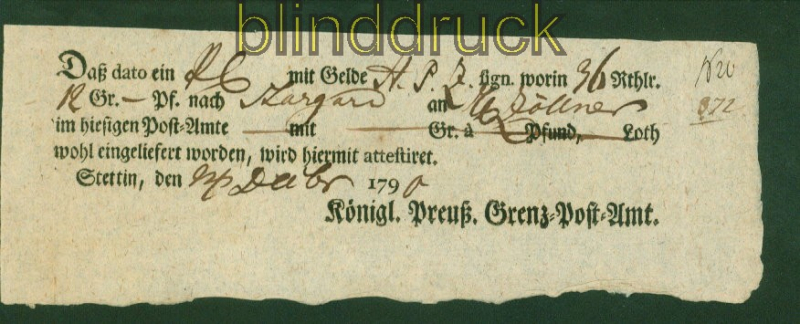 blinddruck
Daß dato ein mit Gelde A. P. Z. sign. worin 36 Rthlr.
12 Gr. — Pf. nach Stargard an Zöllner
im hiesigen Post-Amte — mit — Gr. à Pfund, Loth
wohl eingeliefert worden, wird hiermit attestiret.
Stettin, den Decbr 1790
Königl. Preuß. Grenz-Post-Amt.